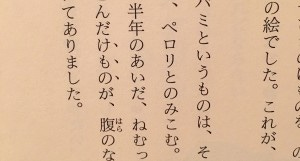 の絵でした。これが、
バミというものは、そ
、ペロリとのみこむ。
半年のあいだ、ねむっ
んだけものが、腹のな
はら
てありました。